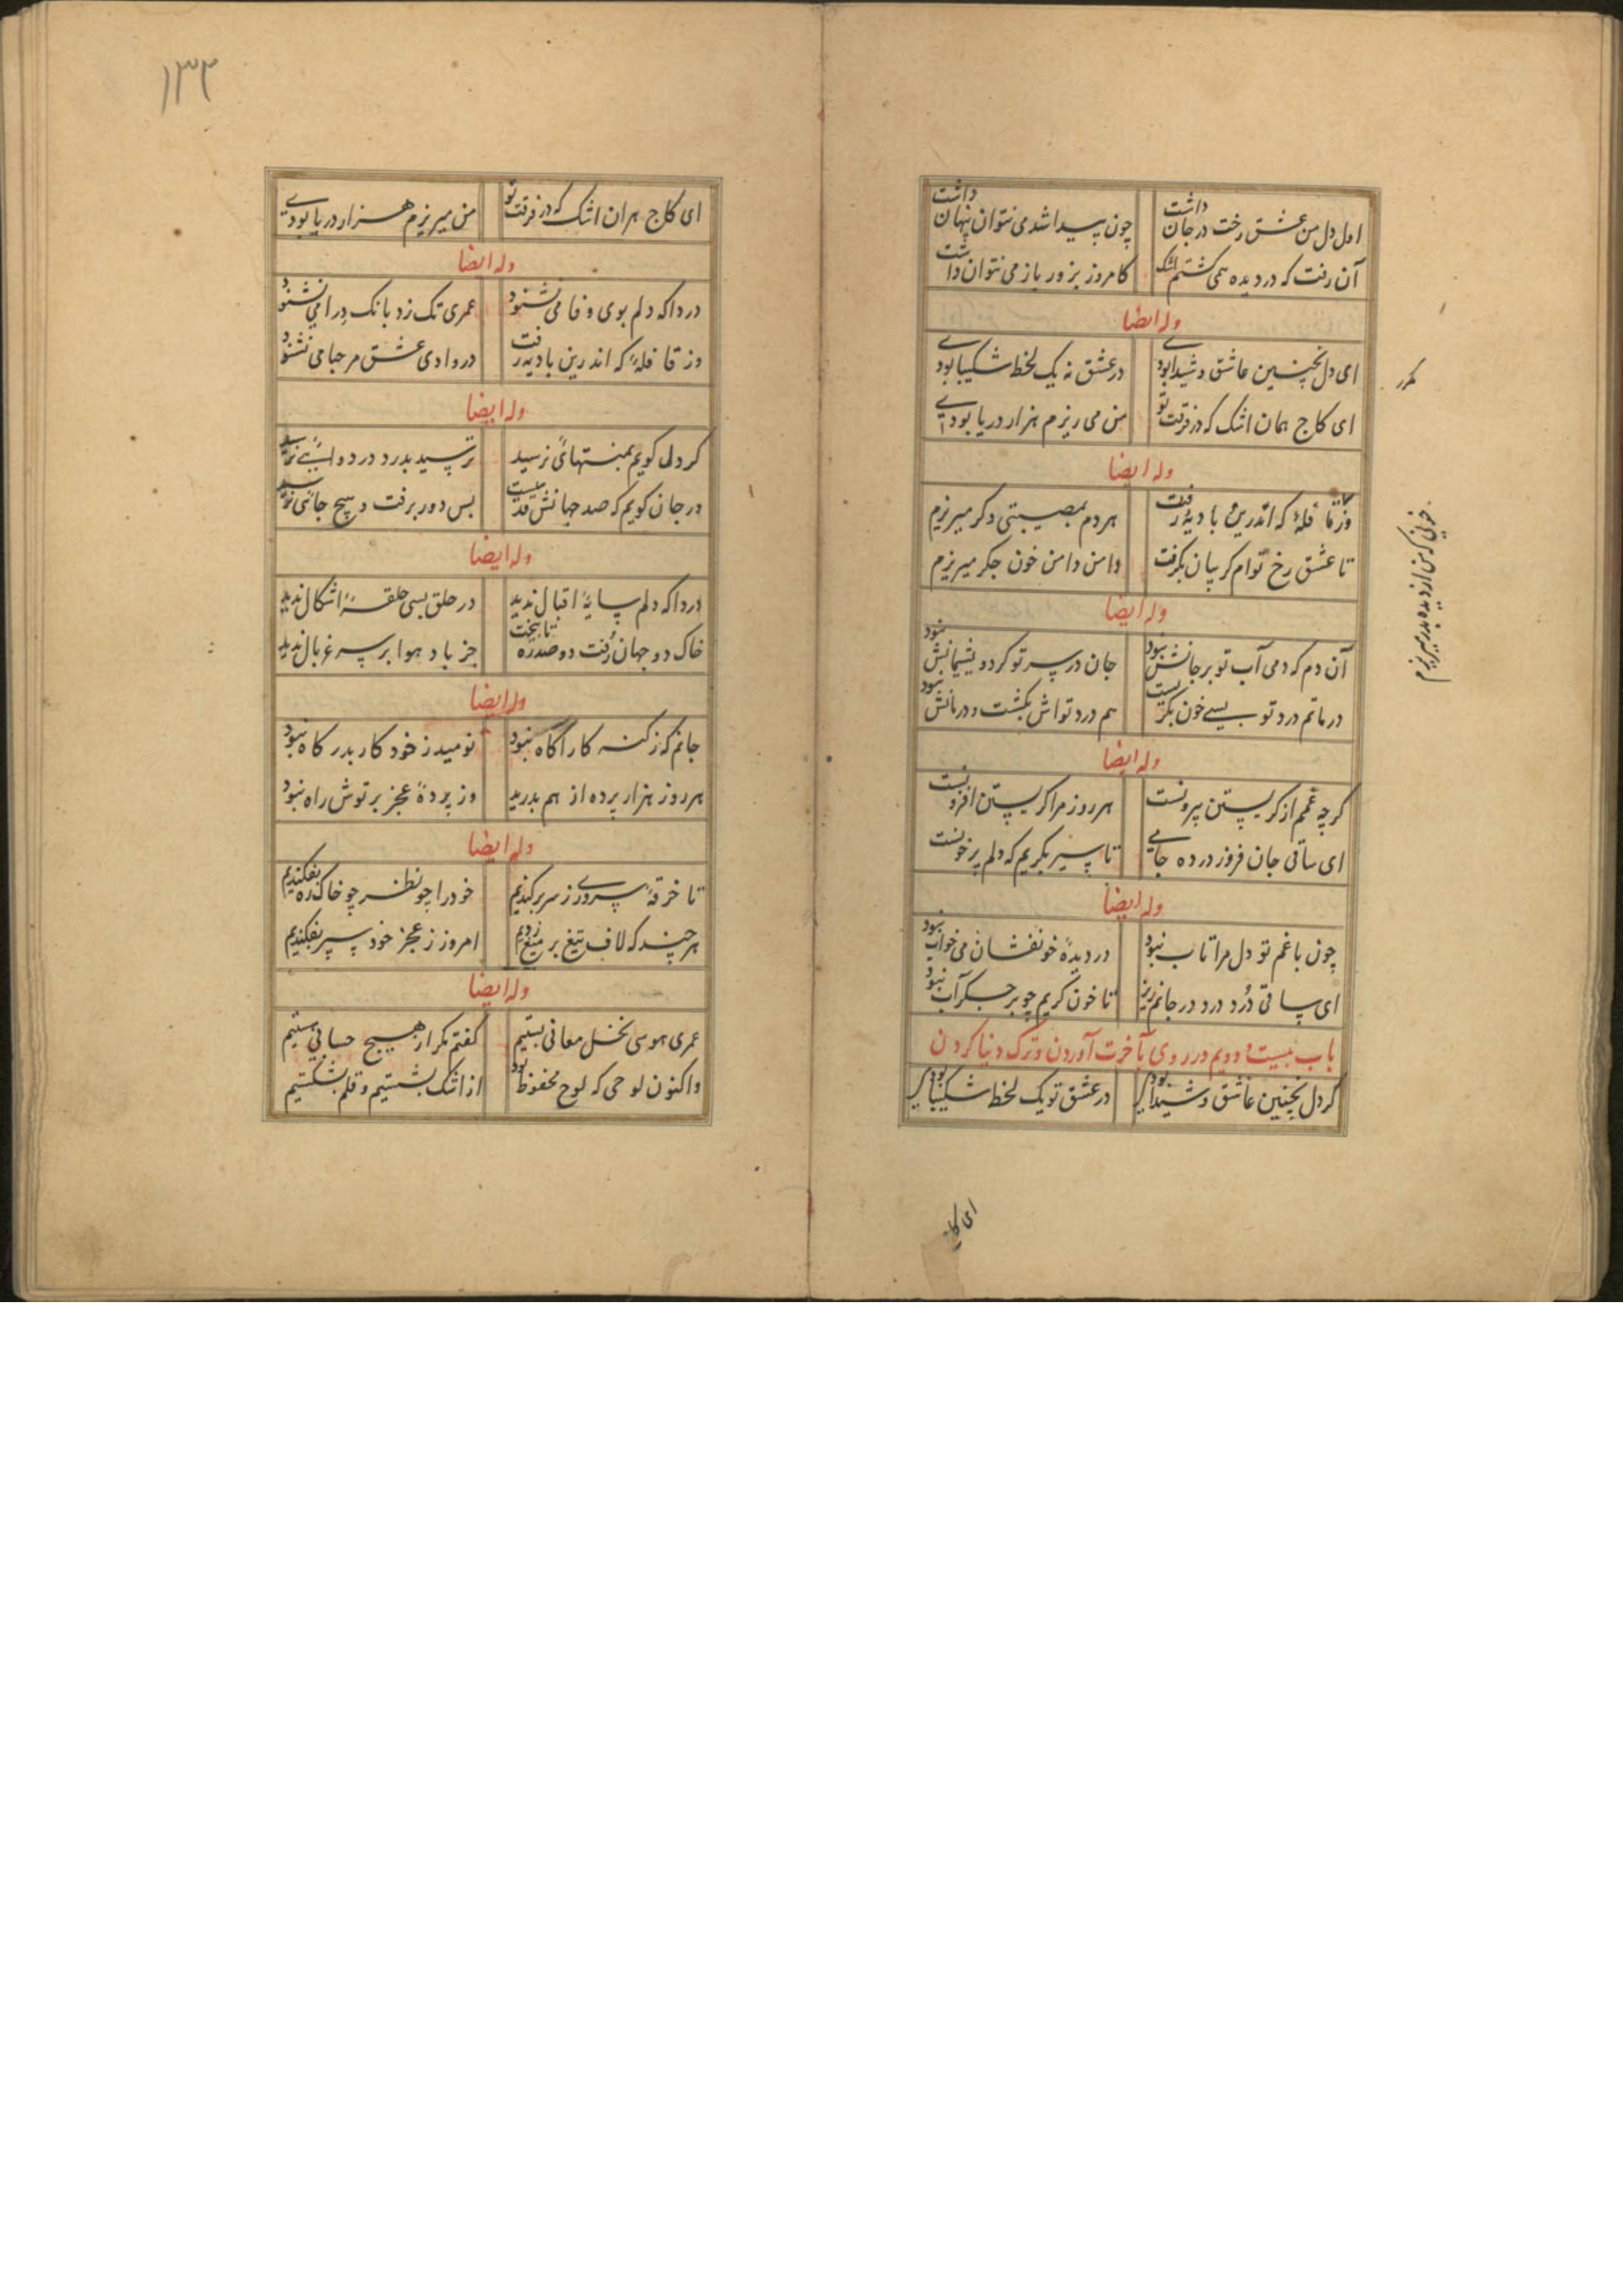 اول دل من عشق رخت در جان داشت چون پیدا شد می نتوان پنهان داشت
آن رفت که در دیده همی گشتم اشک کامروز بزور باز می نتوان داشت
وله ایضا
ای دل بچنین عاشق و شیدا بودی در عشق نه یک لحظ شکیبا بودی
ای کاج همان اشک که در فرقت تو من می ریزم هزار دریا بودی
مکرر
وله ایضا
وز قافلهٔ که اندرین بادیه رفت هر دم بمصیبتی دکر میریزم
تا عشق رخ توام کریبان بکرفت دامن دامن خون جکر میریزم
خونی که من از دیده بدر میریزم
وله ایضا
آن دم که دمی آب تو بر جانش نبود جان در سر تو کرد و پشیمانش نبود
در ماتم درد تو بسی خون بکریست هم درد تواش بکشت و درمانش نبود
وله ایضا
کرچه غمم از کریستن بیرونست هر روز مرا کریستن افزونست
ای ساقی جان فروز در ده جامی تا سیر بکریم که دلم پر خونست
وله ایضا
چون با غم تو دل مرا تاب نبود در دیدهٔ خونفشان می خواب نبود
ای ساقی دُرد درد در جانم ریز تا خون کریم چو بر جکر آب نبود
باب بیست و دویم در روی بآخرت آوردن و ترک دنیا کردن
کر دل بچنین عاشق و شیدا بودی در عشق تو یک لحظ شکیبا بودی
ای کاج
۱۳۳
ای کاج هران اشک که در فرقت تو من میریزم هزار دریا بودی
وله ایضا
دردا که دلم بوی وفا می نشنود عمری تک زد بانک درا می نشنود
وز قافلهٔ که اندرین بادیه رفت در وادی عشق مرحبا می نشنود
وله ایضا
کر دل کویم بمنتهائی نرسید ترسید بدرد در دوائی نرسید
ور جان کویم که صد جهانش قدمیست بس دور برفت و هیچ جائی نرسید
وله ایضا
دردا که دلم سایهٔ اقبال ندید در حلق بسی حلقهٔ اشکال ندید
خاک دو جهان رُفت دو صد ره تا بیخت جز باد هوا بر سر غربال ندید
وله ایضا
جانم که ز کنه کار آکاه نبود نومید ز خود کار بدر کاه نبود
هر روز هزار پرده از هم بدرید وز پردهٔ عجز برتوش راه نبود
وله ایضا
تا خرقهٔ سروری ز سر برکندیم خود را چو نظر چو خاک ره بفکندیم
هر چند که لاف تیغ بر میغ زدیم امروز ز عجز خود سپر بفکندیم
وله ایضا
عمری هوسی نخل معانی بستیم کفتم مکر از هیچ حسابی هستیم
واکنون لوحی که لوح محفوظ بود از اشک بشستیم و قلم بشکستیم